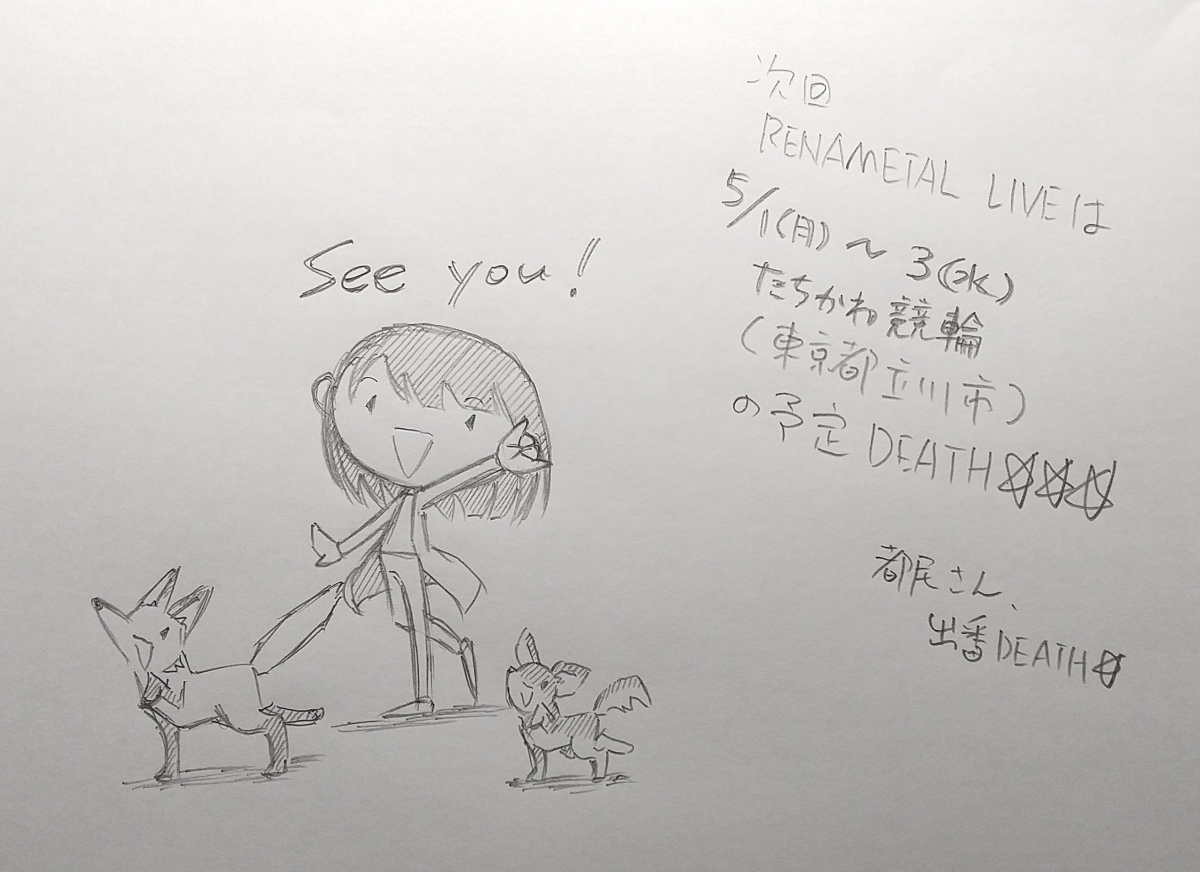 See you!
次回
RENAMETAL LIVEは
5/1(月)~3(水)
たちかわ競輪
(東京都立川市)
の予定DEATH☆☆☆
都民さん、
出番DEATH☆